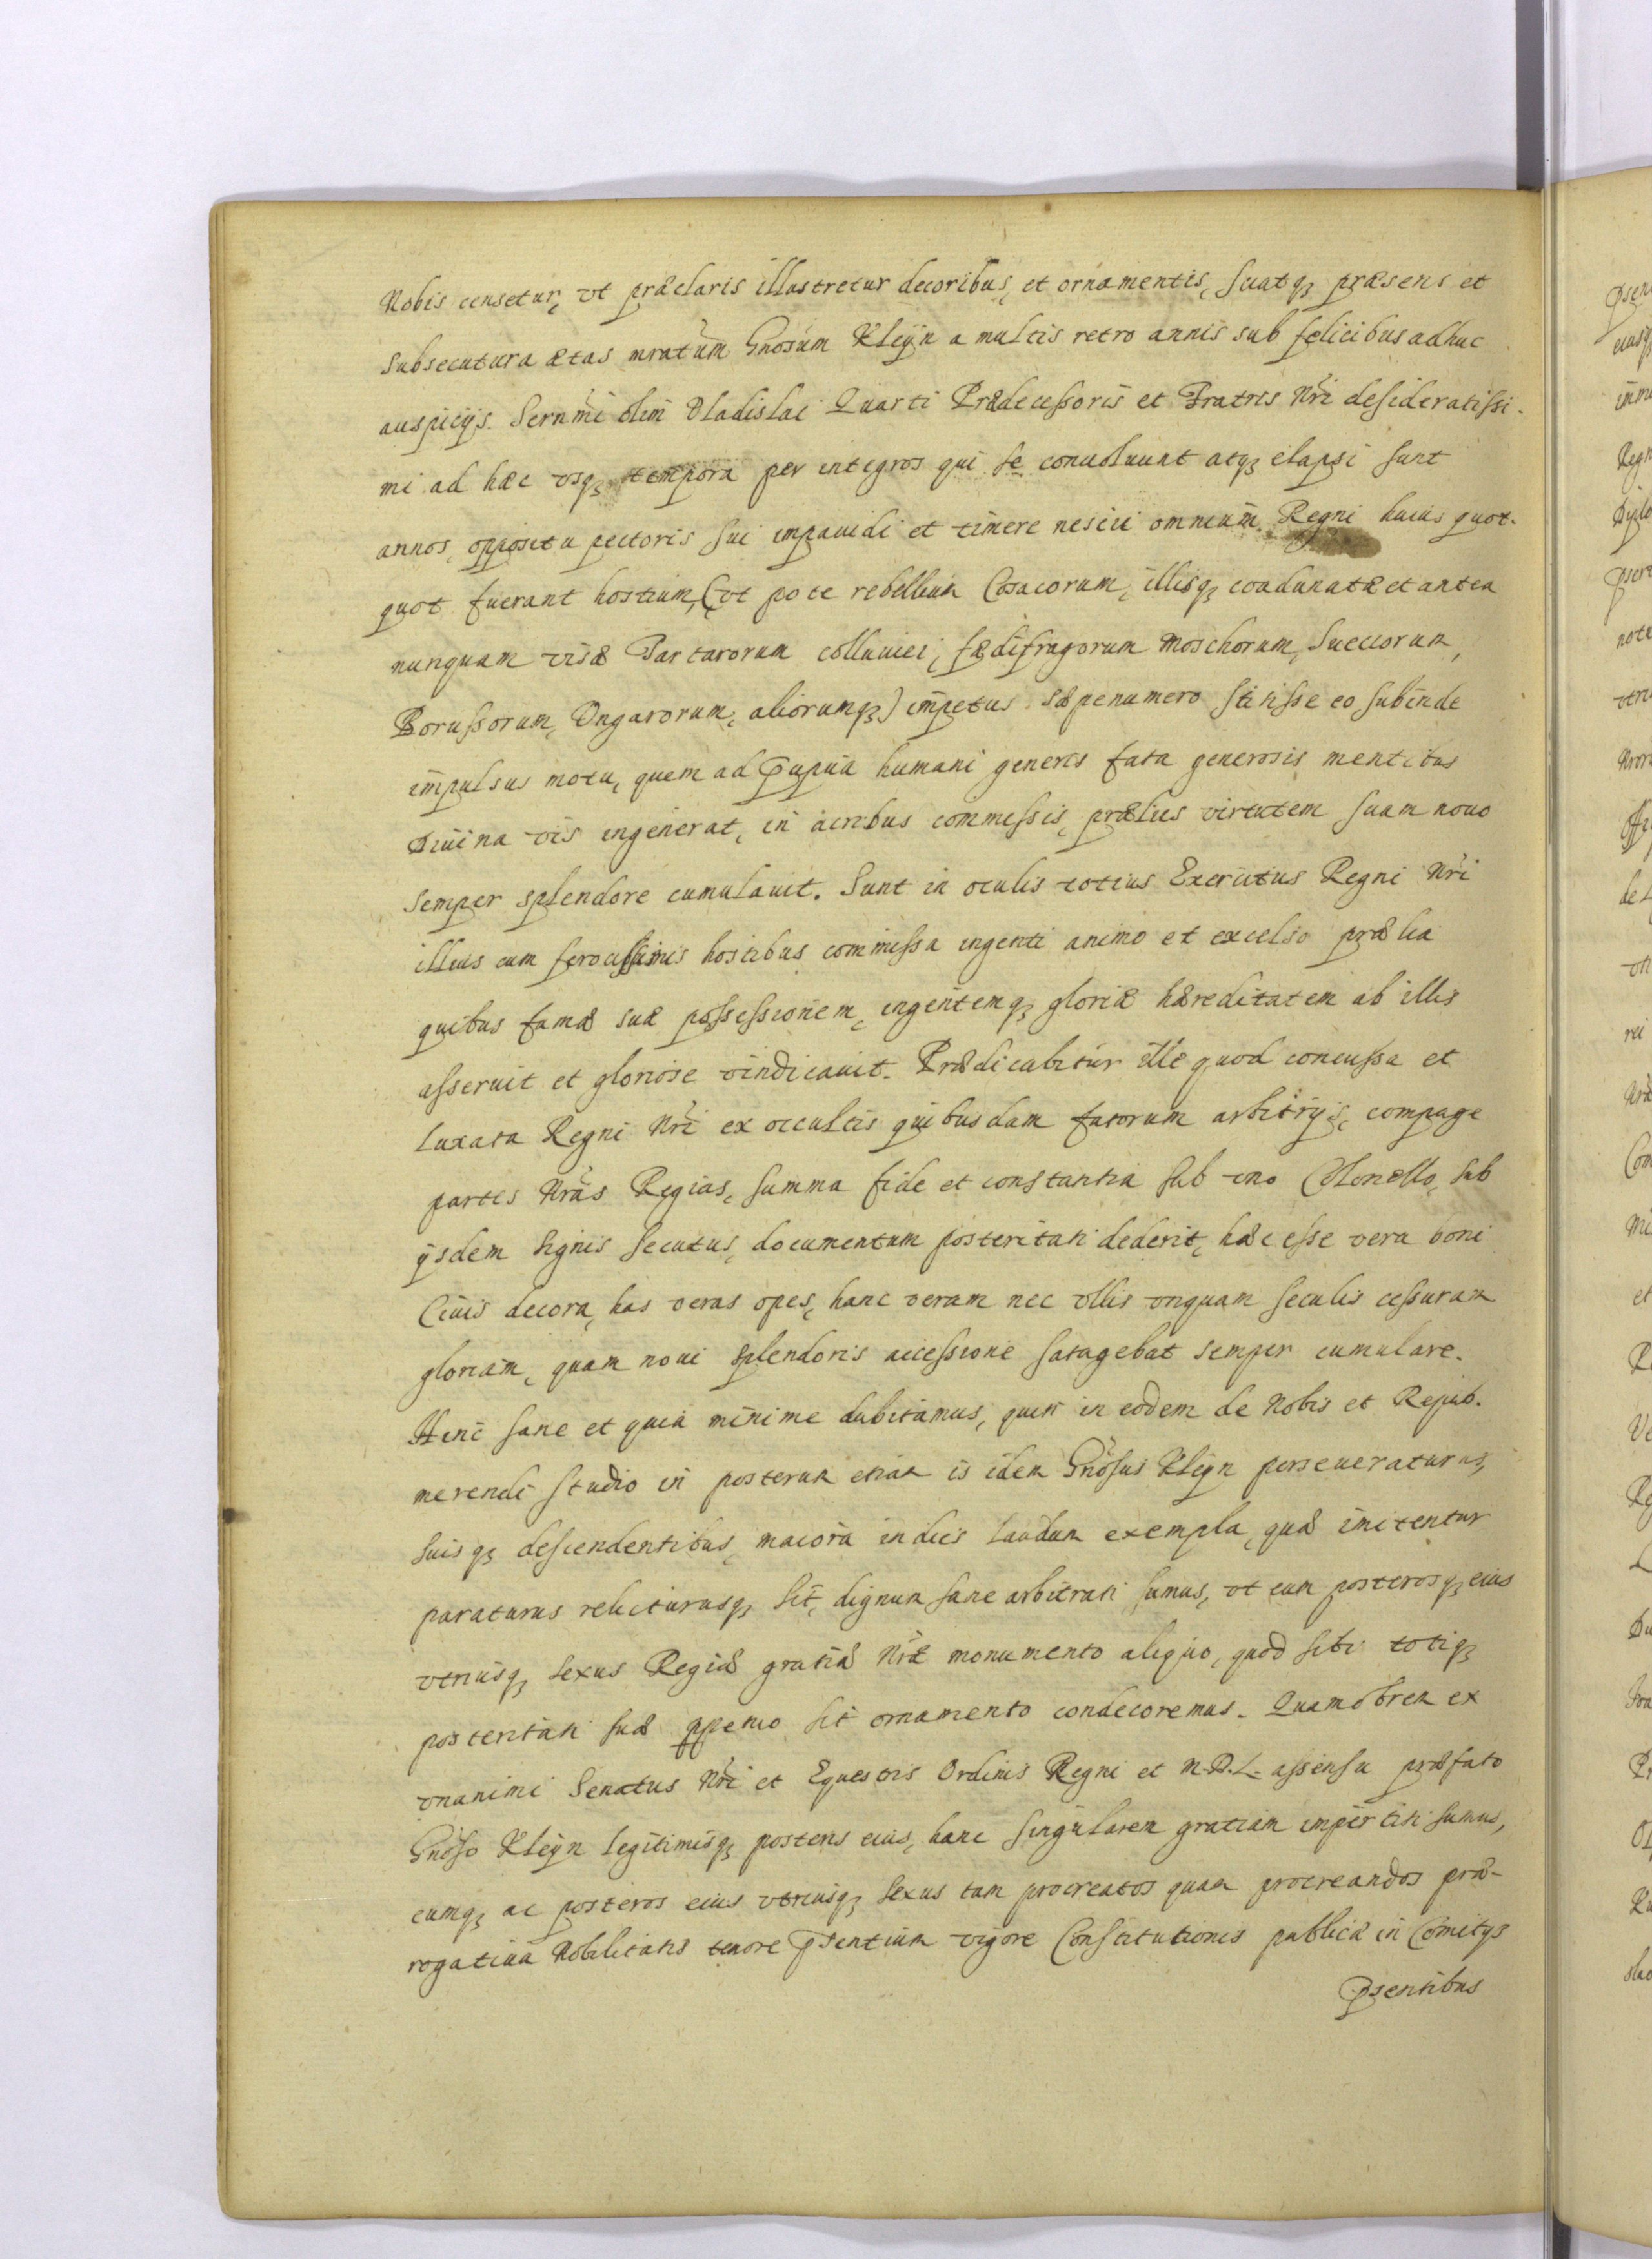 Nobis censetur, vt præclaris illustretur decoribus, et ornamentis, sciatq3 præsens et
subsecutura ætas mratum Gnosum Kleÿn a multis retro annis sub felicibus adhuc
auspicÿs Sernmi olim Vladislai Quarti Prædecessoris et Fratris Nri desideratissi-
mi ad hæc vsq3 tempora per integros qui se conuoluunt atq3 elapsi sunt
annos, oppositu pectoris sui impauidi et timere nescii omnium Regni huius quot-
quot fuerant hostium, (vt pote rebellium Cosacorum, illisq3 coadunatæ et antea
nunquam visæ Tartarorum colluuiei, fædifragorum Moschorum, Suecorum,
Borussorum, Vngarorum, aliorumq3) impetus sæpenumero stitisse eo subinde
impulsus motu, quem ad humani generis fata generosis mentibus
Diuina vis ingenerat, in acribus commissis prælies virtutem suam nouo
semper splendore cumulauit. Sunt in oculis totius Exercitus Regni Nri
illius cum ferocissimis hostibus commissa ingenti animo et excelso prælia
quibus famæ suæ possessionem, ingentemq3 gloriæ hæreditatem ab illis
asseruit et gloriose vindicauit. Prædicabitur ille quod concussa et
luxata Regni Nri ex occultis quibusdam fatorum arbitrÿs, compage
partes Nras Regias, summa fide et constantia sub vno Colonello, sub
ÿsdem signis secutus, documentum posteritati dederit, hæc esse vera boni
Ciuis decora, has veras opes, hanc veram nec vllis vnquam seculis cessuram
gloriam, quam noui splendoris accessione satagebat semper cumulare.
Hinc sane et quia minime dubitamus, quin in eodem de Nobis et Repub.
merendi studio in posterum etiam is idem Gnosus Kleyn perseueraturus,
suisq3 descendentibus, maiora indies laudum exempla, quæ imitentur
paraturus relicturusq3 sit, dignum sane arbitrati sumus, vt eum posterosq3 eius
vtriusq3 sexus Regiæ gratiæ Nræ monumento aliquo, quod sibi totiq3
posteritati suæ ppetuo sit ornamento condecoremus. Quamobrem ex
vnanimi Senatus Nri et Equestris Ordinis Regni et M.D.L. assensu præfato
Gnoso Kleÿn legitimisq3 posteris eius, hanc singularem gratiam impertiti sumus,
eumq3 ac posteros eius vtriusq3 sexus tam procreatos quam procreandos præ-
rogatiua Nobilitatis tenore psentium vigore Constitutionis publicæ in Comitÿs
psentibus